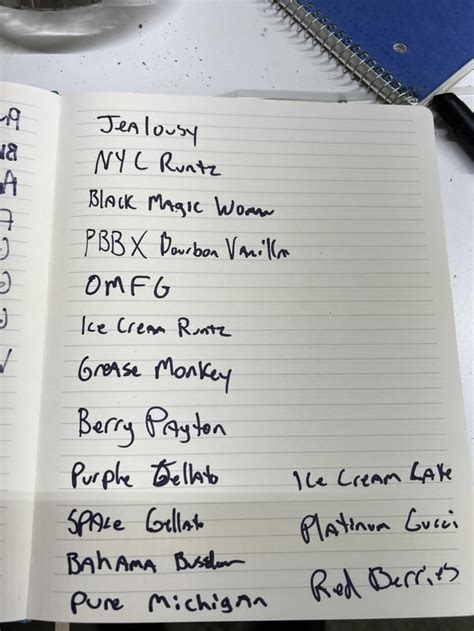 Jealousy
NYC Runtz
Black Magic Woman
PBB X Bourbon Vanilla
OMFG
Ice Cream Runtz
Grease Monkey
Berry Payton
Purple Gellato
Ice Cream Cake
Space Gellato
Platinum Gucci
Bahama
Red Berries
Pure Michigan